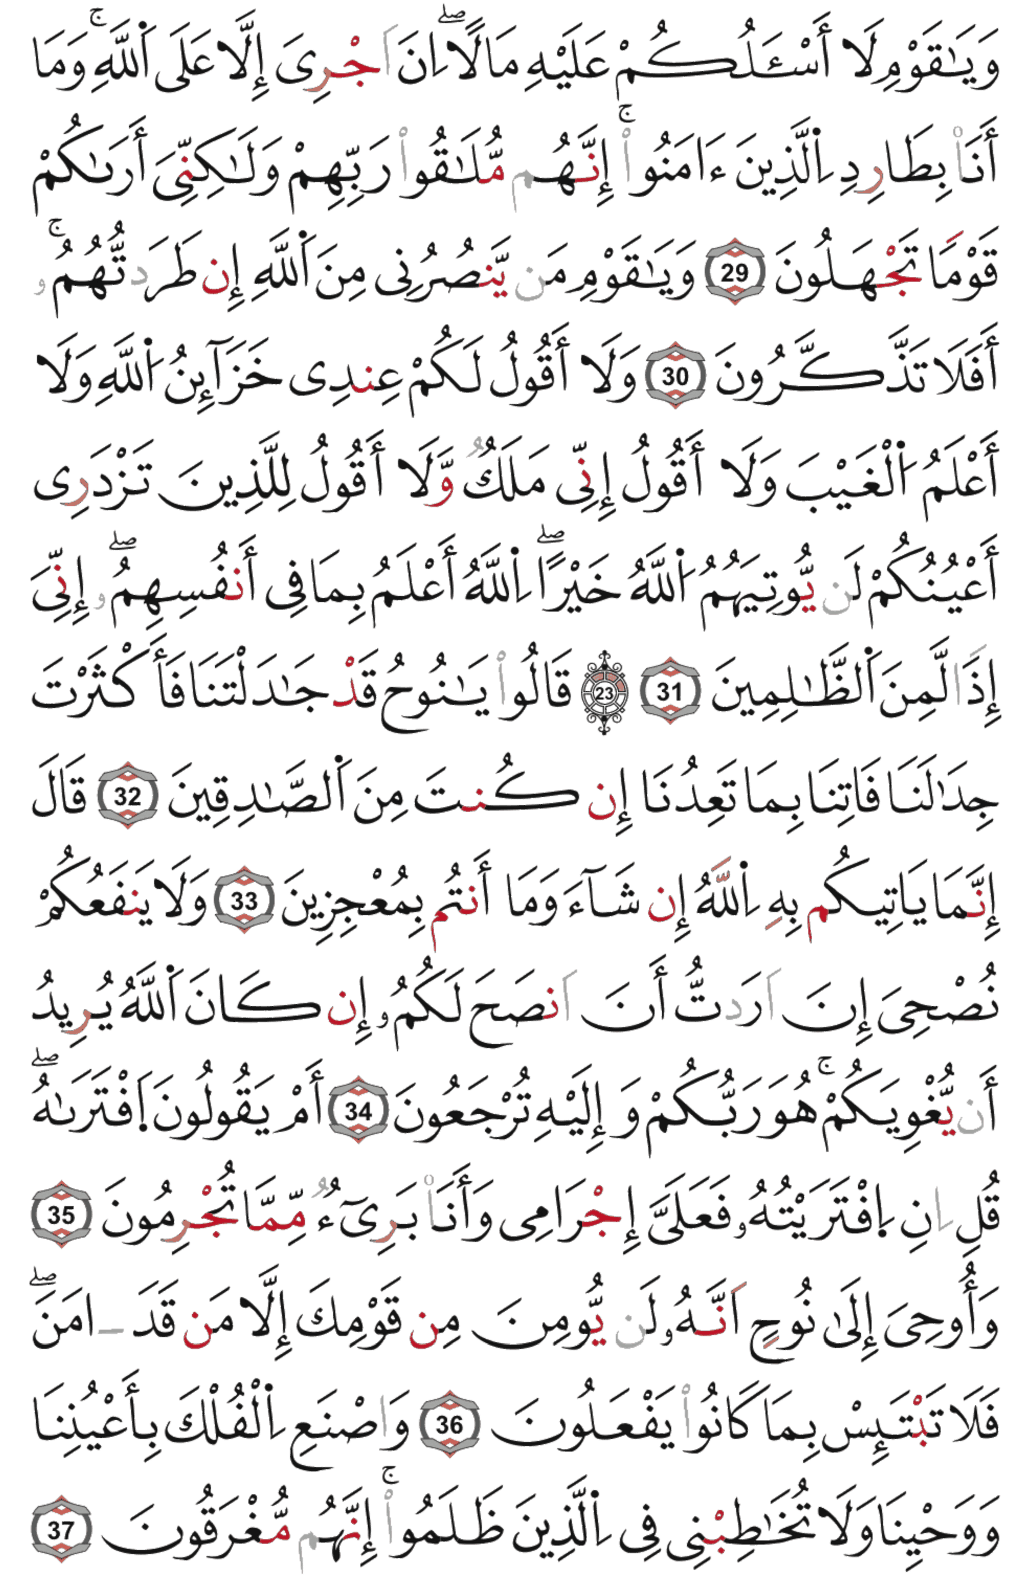 وَيَـٰقَوْمِ لَا أَسْـَٔلُكُمْ عَلَيْهِ مَالًا ۖ اِنَ اَجْرِىَ إِلَّا عَلَى اَ۬للَّهِ ۚ وَمَا
أَنَا۠ بِطَارِدِ اِ۬لَّذِينَ ءَامَنُوا۟ ۚ إِنَّهُم مُّلَـٰقُوا۟ رَبِّهِمْ وَلَـٰكِنِّىَ أَرَىٰكُمْ
قَوْمًا تَجْهَلُونَ 29 وَيَـٰقَوْمِ مَن يَّنصُرُنِى مِنَ اَ۬للَّهِ إِن طَرَدتُّهُمُۥ ۚ
أَفَلَا تَذَّكَّرُونَ 30 وَلَا أَقُولُ لَكُمْ عِندِى خَزَآئِنُ اُ۬للَّهِ وَلَا
أَعْلَمُ اُ۬لْغَيْبَ وَلَا أَقُولُ إِنِّى مَلَكٌ وَّلَا أَقُولُ لِلَّذِينَ تَزْدَرِى
أَعْيُنُكُمْ لَن يُّوتِيَهُمُ اُ۬للَّهُ خَيْرًا ۖ اِ۬للَّهُ أَعْلَمُ بِمَا فِى أَنفُسِهِمُۥ ۖ إِنِّىَ
إِذًا لَّمِنَ اَ۬لظَّـٰلِمِينَ 31 23 قَالُوا۟ يَـٰنُوحُ قَدْ جَـٰدَلْتَنَا فَأَكْثَرْتَ
جِدَٰلَنَا فَاتِنَا بِمَا تَعِدُنَا إِن كُنتَ مِنَ اَ۬لصَّـٰدِقِينَ 32 قَالَ
إِنَّمَا يَاتِيكُم بِهِ اِ۬للَّهُ إِن شَآءَ وَمَا أَنتُم بِمُعْجِزِينَ 33 وَلَا يَنفَعُكُمْ
نُصْحِىَ إِنَ اَرَدتُّ أَنَ اَنصَحَ لَكُمُۥ إِن كَانَ اَ۬للَّهُ يُرِيدُ
أَن يُّغْوِيَكُمْ ۚ هُوَ رَبُّكُمْ وَإِلَيْهِ تُرْجَعُونَ 34 أَمْ يَقُولُونَ اَ۪فْتَرَىٰهُ ۖ
قُلِ اِنِ اِ۪فْتَرَيْتُهُۥ فَعَلَىَّ إِجْرَامِى وَأَنَا۠ بَرِىٓءٌ مِّمَّا تُجْرِمُونَ 35
وَأُوحِىَ إِلَىٰ نُوحٍ اَنَّهُۥ لَن يُّومِنَ مِن قَوْمِكَ إِلَّا مَن قَدَ ـ امَنَ ۖ
فَلَا تَبْتَئِسْ بِمَا كَانُوا۟ يَفْعَلُونَ 36 وَاصْنَعِ اِ۬لْفُلْكَ بِأَعْيُنِنَا
وَوَحْيِنَا وَلَا تُخَـٰطِبْنِى فِى اِ۬لَّذِينَ ظَلَمُوا۟ ۚ إِنَّهُم مُّغْرَقُونَ 37